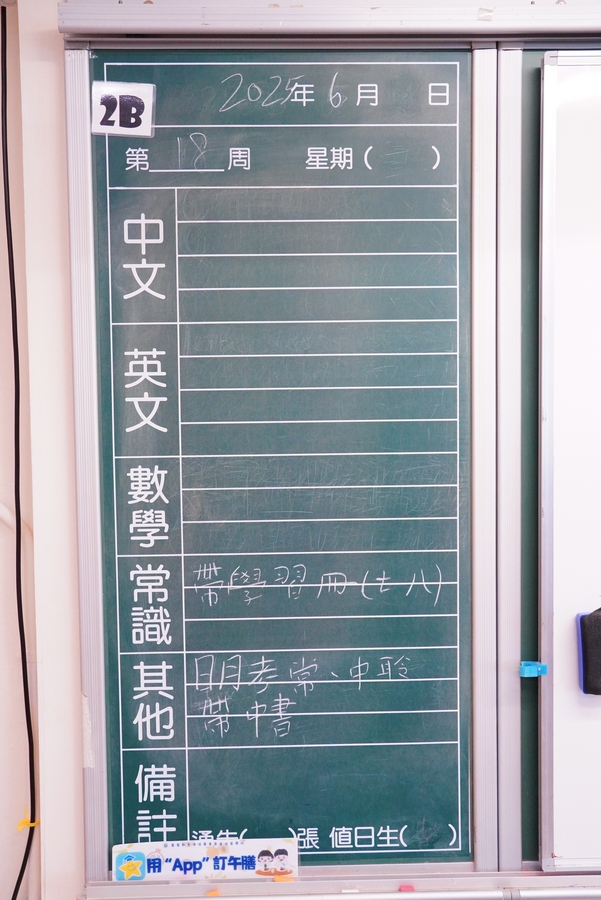 2B
2025年6月 日
第18周 星期( )
中文
英文
數學
常識
帶學習冊(七 八)
其他
明考常、中聆
帶中書
備註
通告( )張 值日生( )
用“App”訂午膳